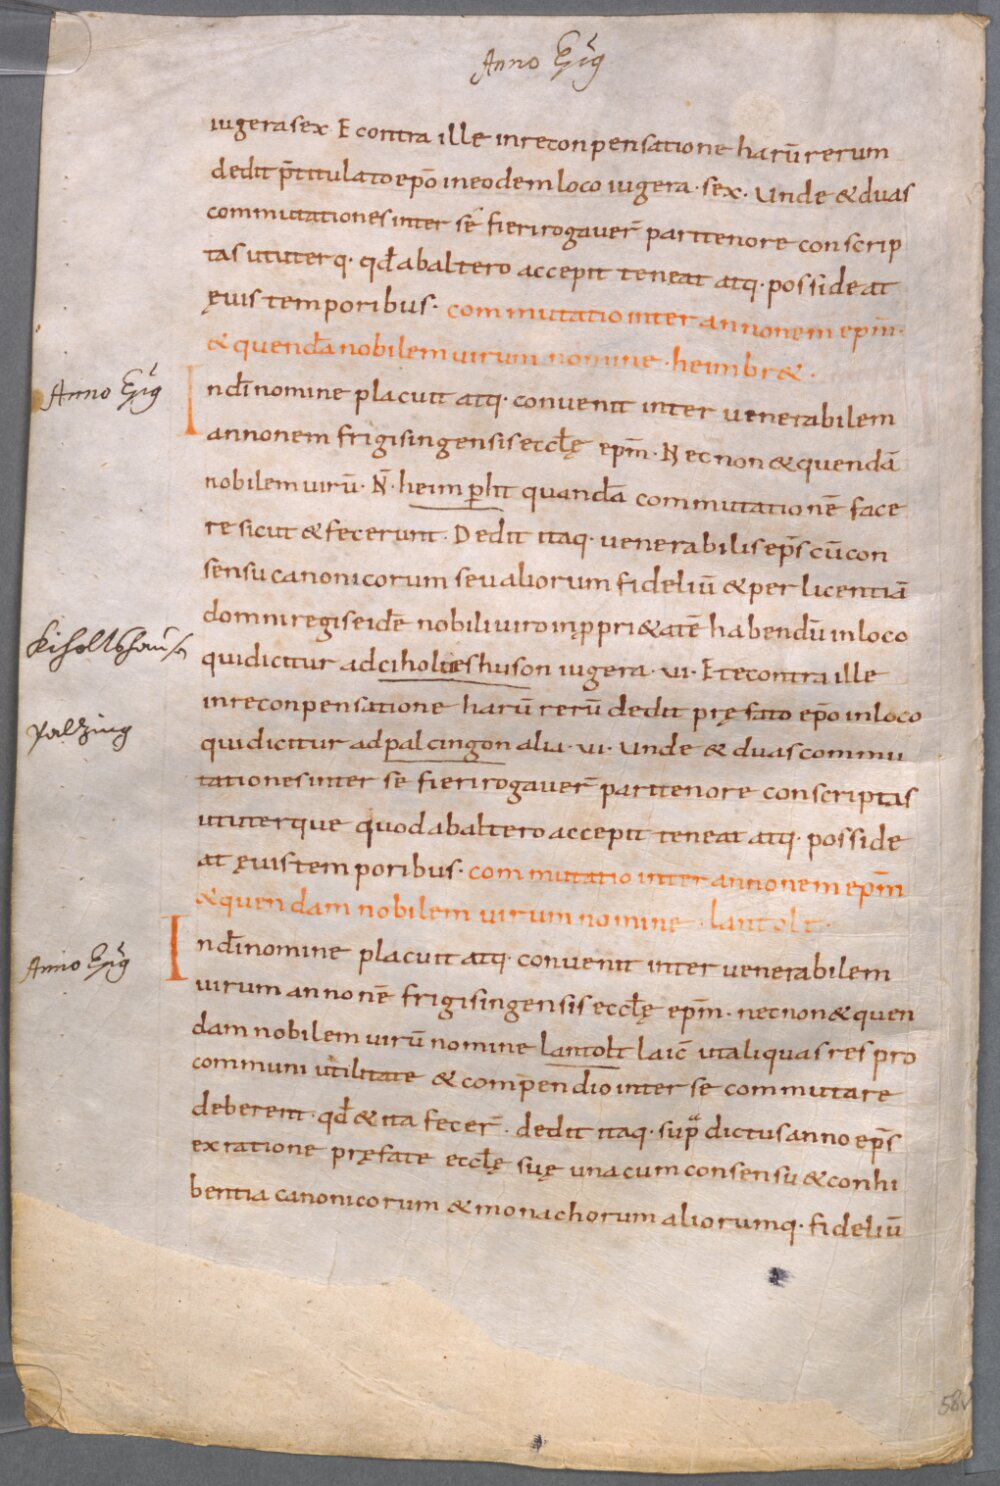 Anno Epīs
iugera sex. E contra ille in reconpensatione harū rerum
dedit p̄titulato ep̄o in eodem loco iugera · sex · Unde & duas
commutationes inter se fieri rogauer̄ pari tenore conscrip
tas ut uterq· qđ ab altero accepit teneat atq· possideat
ęuis temporibus · commutatio inter annonem ep̄m ·
& quendā nobilem uirum nomine · heimbr& ·
Anno Epīs
In dī nomine placuit atq· conuenit inter uenerabilem
annonem frigisingensis eccłę ep̄m · Nec non & quendā
nobilem uirū · N̄ · heimp̲ħt quandā commutationē face
re sicut & fecerunt · Dedit itaq· uenerabilis ep̄s cū con
sensu canonicorum seu aliorum fideliū & per licentiā
domni regis eidē nobili uiro in ꝓpri&atē habendū in loco
Kiholtshausn
qui dicitur ad ciholteshuson iugera · ui · Et econtra ille
in reconpensatione harū rerū dedit pręfato ep̄o in loco
Palzing
qui dicitur ad palcingon alia · ui · unde & duas commu
tationes inter se fieri rogauer̄ pari tenore conscriptas
ut uterque quod ab altero accepit teneat atq· posside
at ęuis temporibus · commutatio inter annonem ep̄m
& quendam nobilem uirum nomine · lantolt ·
Anno Epīs
In dī nomine placuit atq· conuenit inter uenerabilem
uirum annonē frigisingensis eccłę ep̄m · nec non & quen
dam nobilem uirū nomine lantolt laic̄ ut aliquas res pro
communi utilitate & compendio inter se commutare
deberent · qđ & ita fecer̄ · dedit itaq· sup̄ dictus anno ep̄s
ex ratione pręfate eccłę suę una cum consensu & conhi
bentia canonicorum & monachorum aliorumq· fideliū
58v